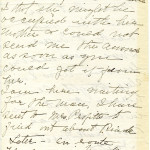 I that she might be
occupied with her
mother & could not
send me the answer
as soon as you
could get it from
her.
I am here waiting
for the men, I have
sent to Mrs.
find out about
Later – En route